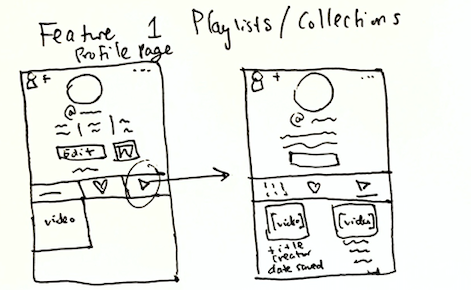 Feature 1 Playlists / Collections
Profile Page
@
@
Edit
video
[video] [video]
title
creator
date saved